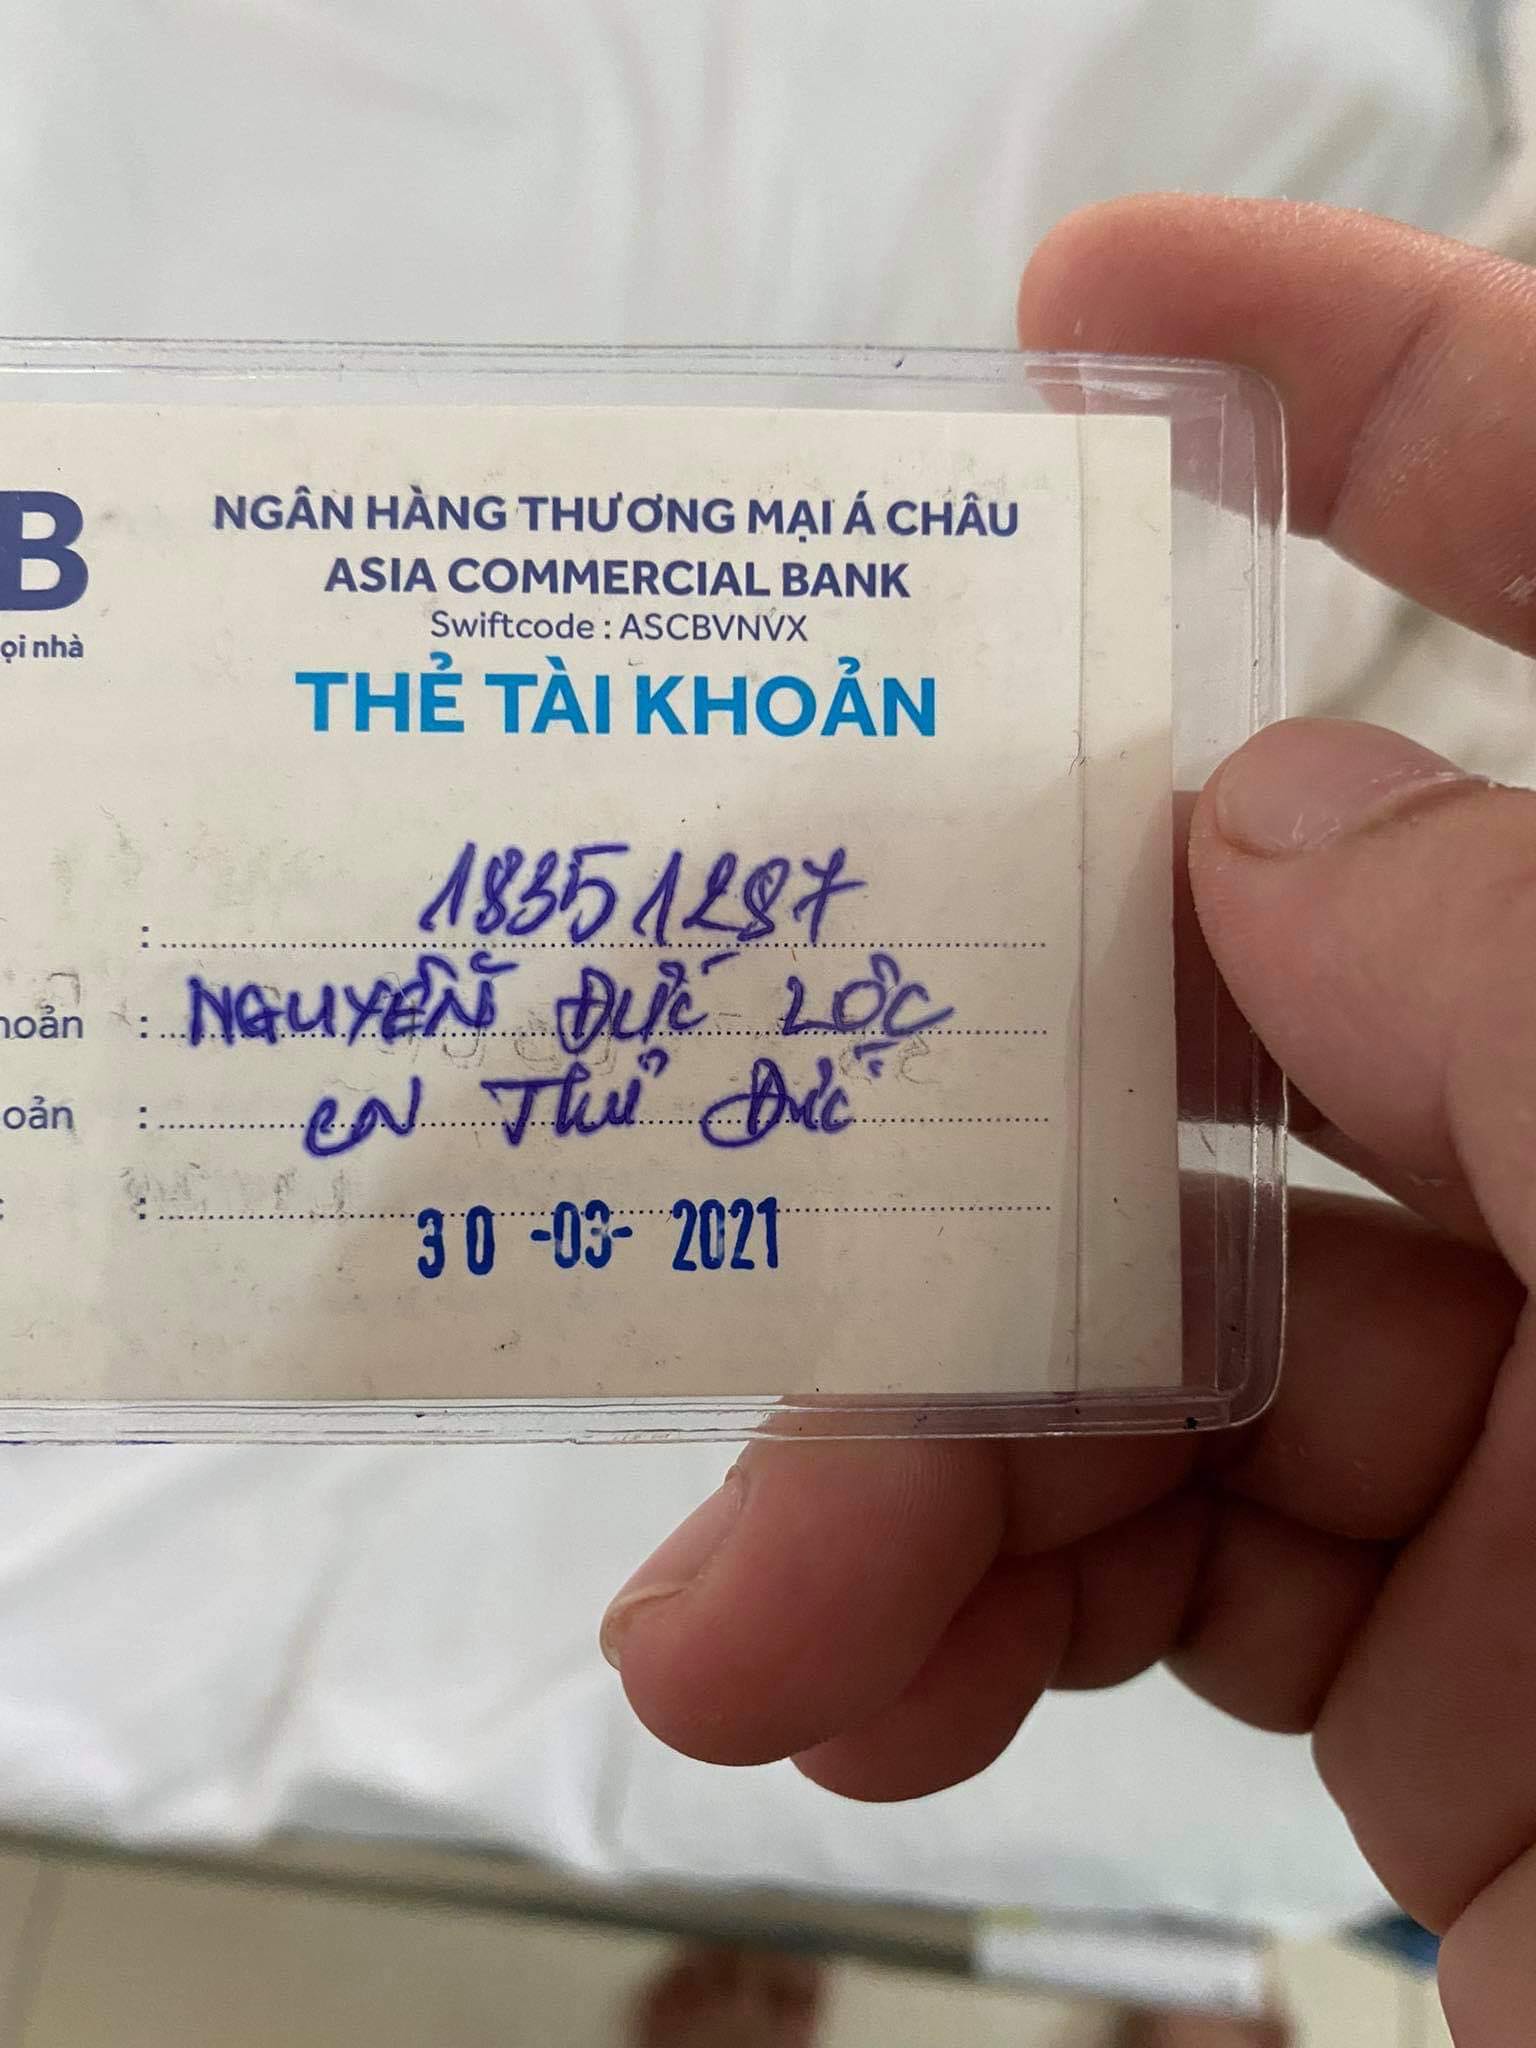 B
NGÂN HÀNG THƯƠNG MẠI Á CHÂU
ASIA COMMERCIAL BANK
Swiftcode : ASCBVNVX
ọi nhà
THẺ TÀI KHOẢN
: 18351287
hoản : NGUYỄN ĐỨC LỘC
oản : CN Thủ Đức
: 30 -03- 2021